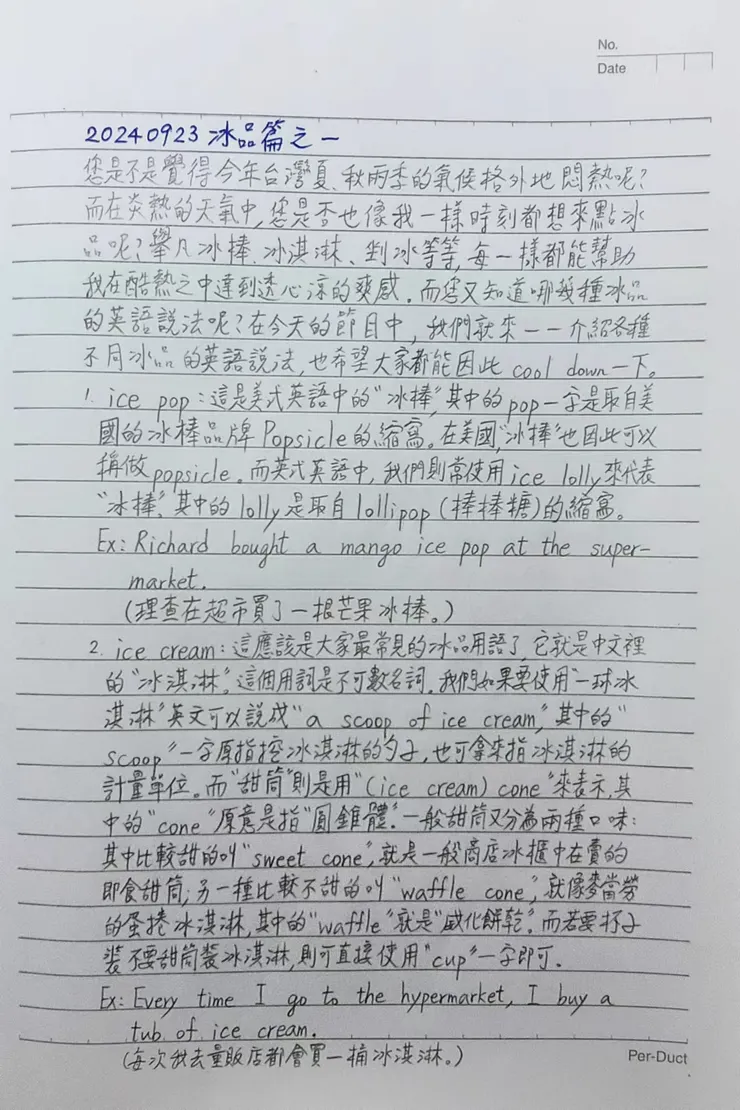 No.
Date
20240923 冰品篇之一
您是不是覺得今年台灣夏、秋兩季的氣候格外地悶熱呢?
而在炎熱的天氣中,您是否也像我一樣時刻都想來點冰
品呢?舉凡冰棒、冰淇淋、剉冰等等,每一樣都能幫助
我在酷熱之中達到透心涼的爽感。而您又知道哪幾種冰品
的英語說法呢?在今天的節目中,我們就來一一介紹各種
不同冰品的英語說法,也希望大家都能因此 cool down一下。
1. ice pop:這是美式英語中的"冰棒",其中的pop一字是取自美
國的冰棒品牌 Popsicle的縮寫。在美國,"冰棒"也因此可以
稱做popsicle。而英式英語中,我們則常使用ice lolly來代表
"冰棒",其中的lolly是取自lollipop(棒棒糖)的縮寫。
Ex: Richard bought a mango ice pop at the super-
market.
(理查在超市買了一根芒果冰棒。)
2. ice cream:這應該是大家最常見的冰品用語了,它就是中文裡
的"冰淇淋"。這個用詞是不可數名詞。我們如果要使用"一球冰
淇淋"英文可以說成"a scoop of ice cream,"其中的"
scoop"一字原指挖冰淇淋的勺子,也可拿來指冰淇淋的
計量單位。而"甜筒"則是用"(ice cream) cone"來表示,其
中的"cone"原意是指"圓錐體"。一般甜筒又分為兩種口味:
其中比較甜的叫"sweet cone",就是一般商店冰櫃中在賣的
即食甜筒;另一種比較不甜的叫"waffle cone",就像麥當勞
的蛋捲冰淇淋,其中的"waffle"就是"威化餅乾"。而若要杯子
裝不要甜筒裝冰淇淋,則可直接使用"cup"一字即可。
Ex: Every time I go to the hypermarket, I buy a
tub of ice cream.
(每次我去量販店都會買一桶冰淇淋。)
Per-Duct